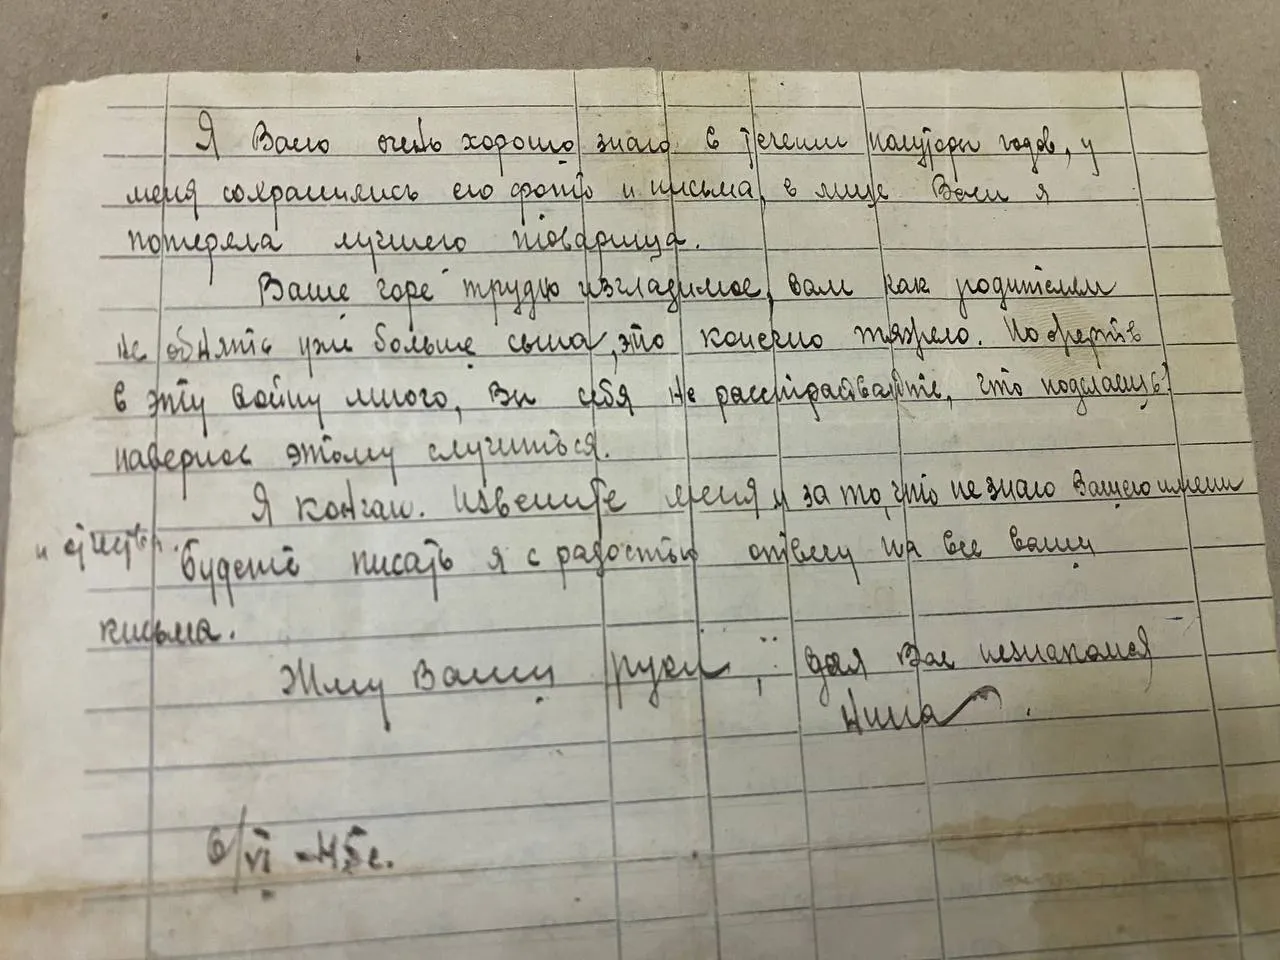 Я Ваю очень хорошо знаю в течении полуторы годов, у
меня сохранились его фото и письма, в лице Вали я
потеряла лучшего товарища.
Ваше горе трудно изгладимое, вам как родителям
не обнять уже больше сына, это конечно тяжело. Но жертв
в эту войну много, Вы себя не расстраивайте, что поделаешь?
наверное этому случиться.
Я кончаю. Извените меня и за то, что не знаю Вашего имени
и отчества.
будете писать я с радостью отвечу на все вашу
письма.
Жму Вашу руки, для Вас незнакомая
Нина
6/VI - 45 г.